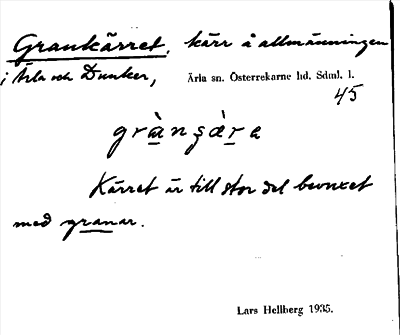 Grankärret, kärr å allmänningen
i Ärla och Dunker, Ärla sn. Österrekarne hd. Sdml. l.
45
grànşæ̀ra
Kärret är till stor del bevuxet
med granar.
Lars Hellberg 1935.